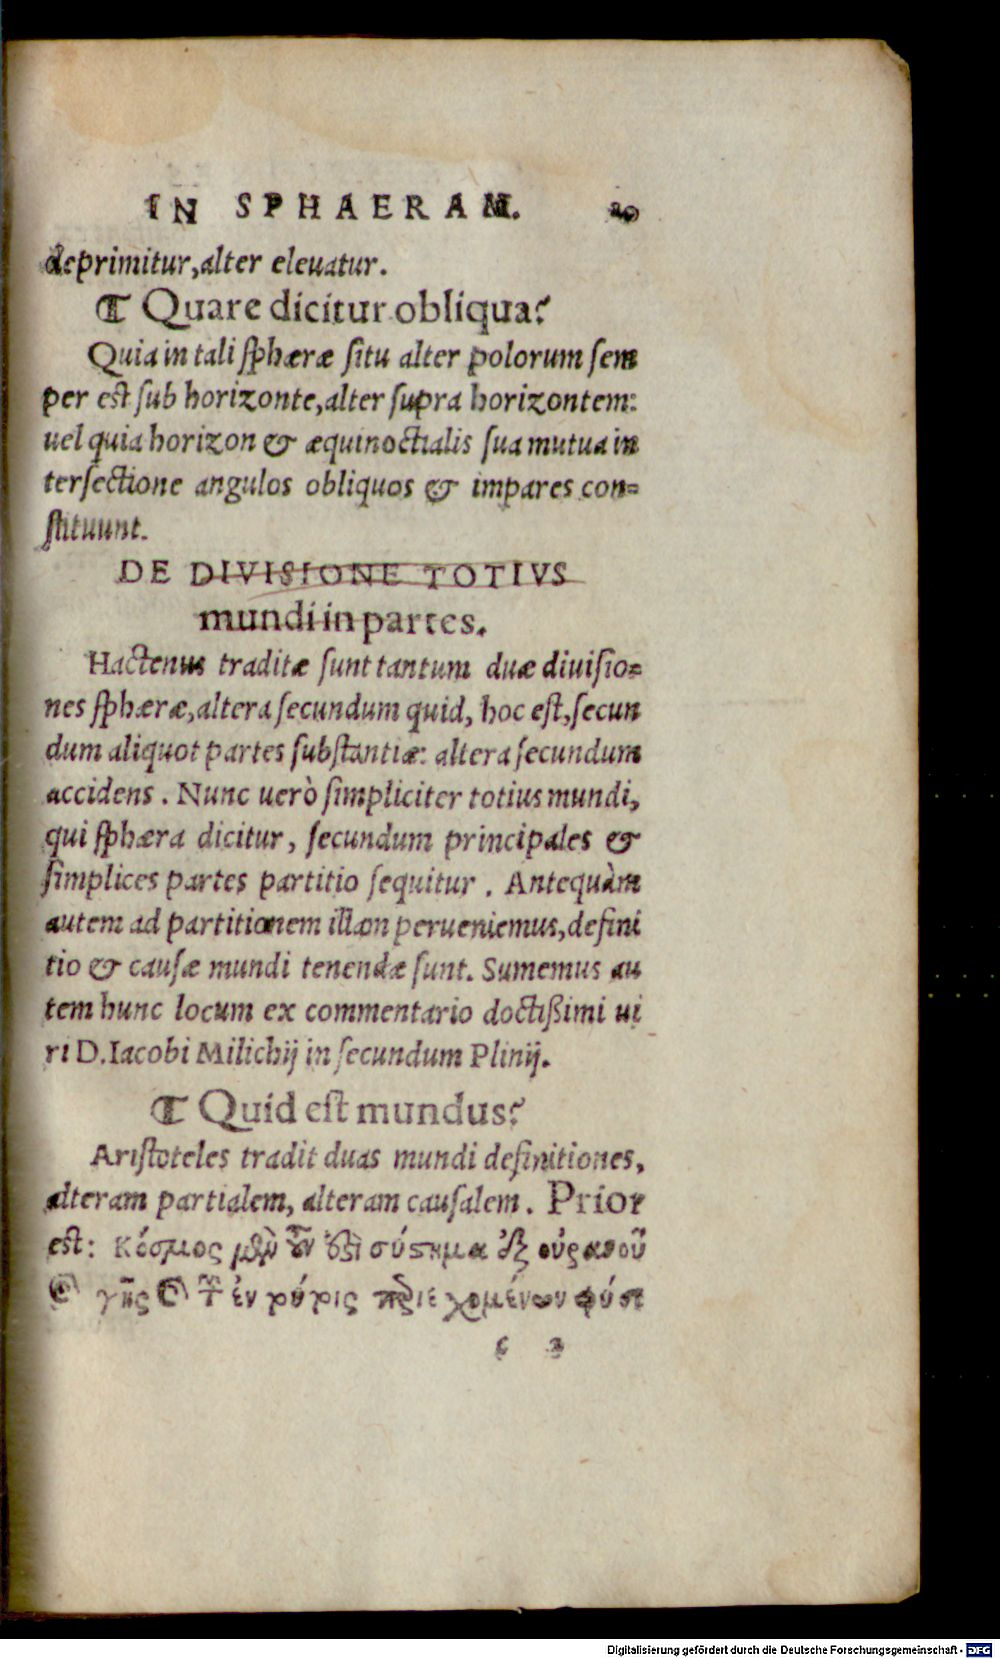 IN SPHAERAM. 20
deprimitur, alter eleuatur.
¶ Quare dicitur obliqua?
Quia in tali sphæræ situ alter polorum sem
per est sub horizonte, alter supra horizontem:
uel quia horizon & æquinoctialis sua mutua in
tersectione angulos obliquos & impares con=
stituunt.
DE DIVISIONE TOTIVS
mundi in partes.
Hactenus traditæ sunt tantum duæ diuisio=
nes sphæræ, altera secundum quid, hoc est, secun
dum aliquot partes substantiæ: altera secundum
accidens. Nunc uerò simpliciter totius mundi,
qui sphæra dicitur, secundum principales &
simplices partes partitio sequitur. Antequàm
autem ad partitionem illam perueniemus, defini
tio & causæ mundi tenendæ sunt. Sumemus au
tem hunc locum ex commentario doctißimi ui
ri D. Iacobi Milichij in secundum Plinij.
¶ Quid est mundus?
Aristoteles tradit duas mundi definitiones,
alteram partialem, alteram causalem. Prior
est: κόσμος μὲν οὖν ἐστὶ σύστημα ἐξ οὐρανοῦ
καὶ γῆς καὶ τῶν ἐν ρύρις περιεχομένων φύσε
c
Digitalisierung gefördert durch die Deutsche Forschungsgemeinschaft - DFG